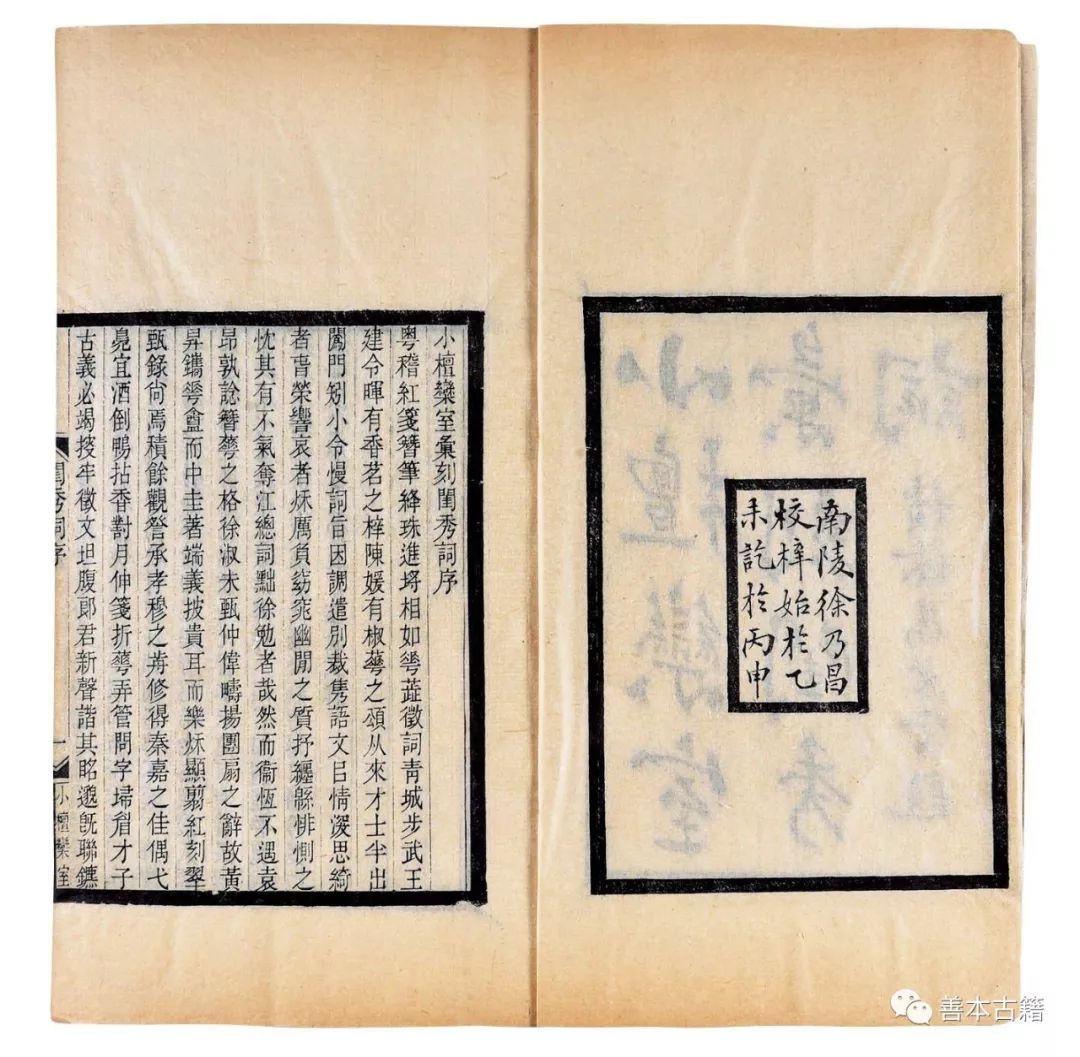 南陵徐乃昌
校梓始於乙
未訖於丙申
小檀欒室彙刻閨秀詞序
粵稽紅箋簪筆絳珠進壻相如䓘蕋徵詞靑城步武王
建令暉有香茗之梓陳媛有椒蕚之頌从來才士半出
閨門矧小令慢詞旨因調遣別裁雋語文㠯情深思綺
者膏榮響哀者烁厲負窈窕幽閒之質抒纏緜悱惻之
忱其有不氣奪江總詞黜徐勉者哉然而衞恆不遇袁
昂孰諗簪蕚之格徐淑未甄仲偉疇揚團扇之辭故黃
昇鐫䓘盦而中圭著端義披貴耳而樂烁顯翦紅刻翠
甄錄尙焉積餘觀詧承孝穆之靑修得秦嘉之佳偶弋
鳧宜酒倒鴨拈香對月伸箋折蕚弄管問字埽眉才子
古義必竭挍本徵文坦腹郞君新聲諧其昭邈旣聯鑣
閨秀詞序
一
小檀欒室
善本古籍